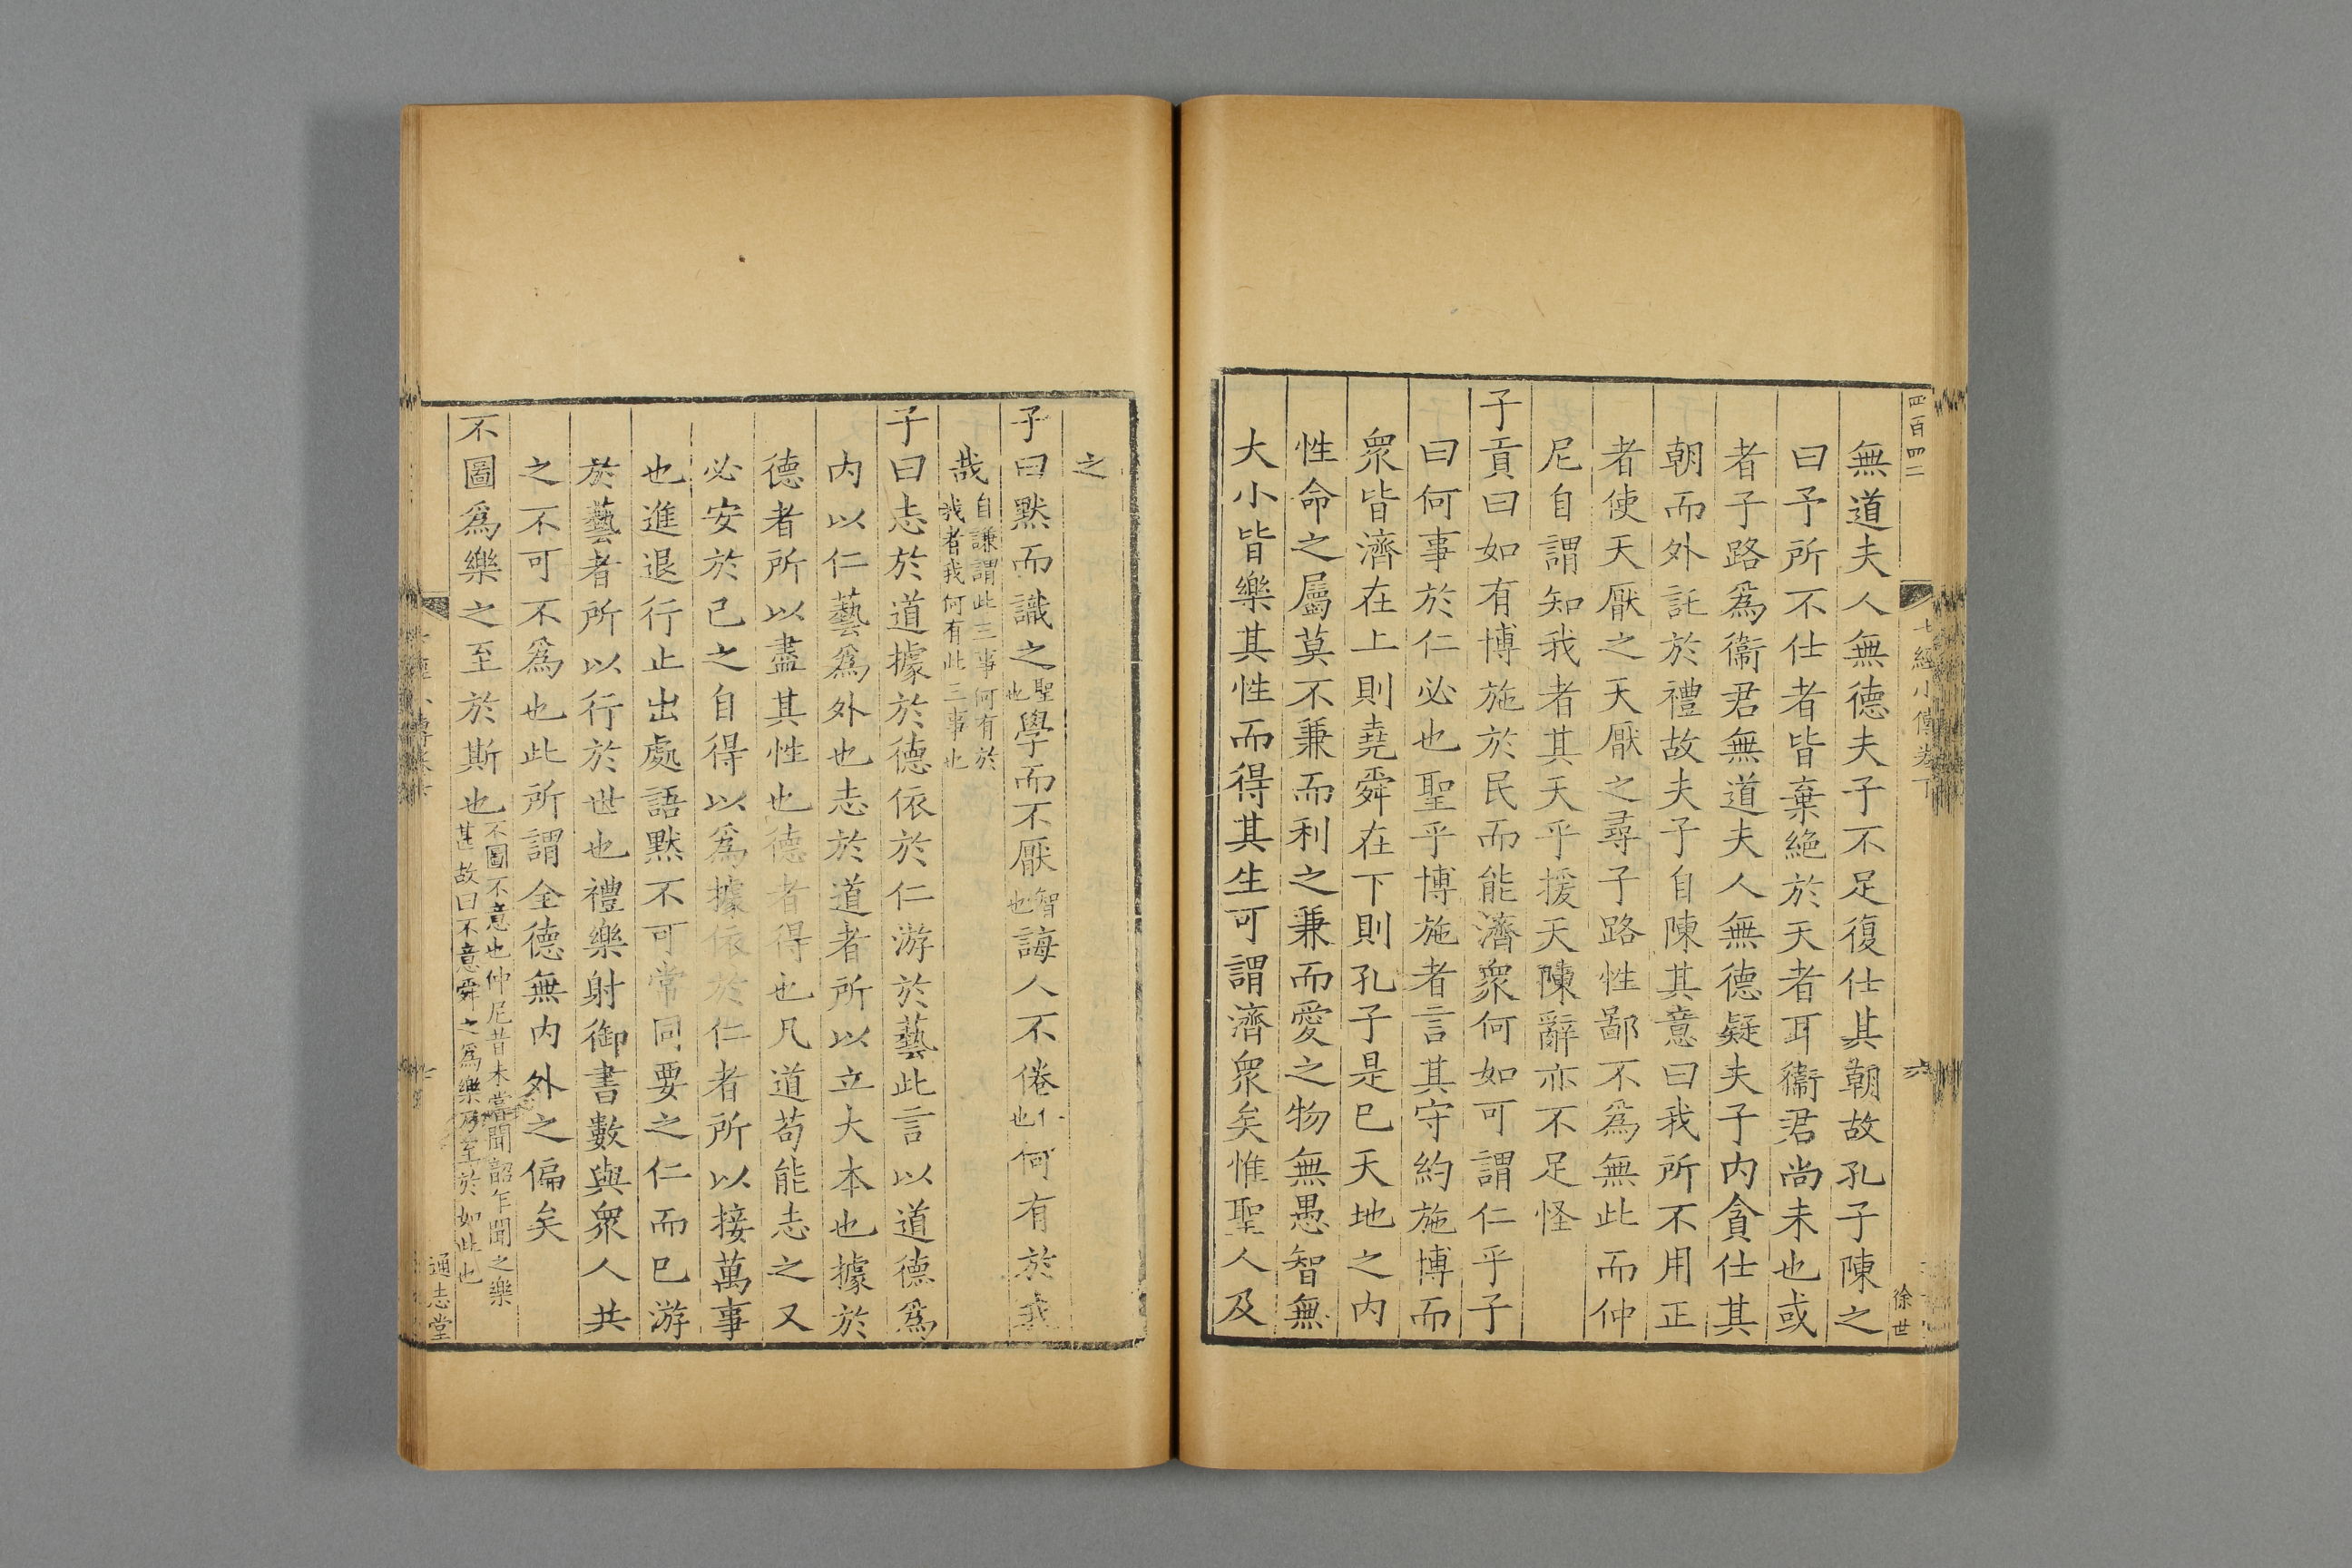 四百四二
七經小傳卷下
六
徐世
無道夫人無德夫子不足復仕其朝故孔子陳之
曰予所不仕者皆棄絶於天者耳衞君尚未也或
者子路爲衞君無道夫人無德疑夫子内貪仕其
朝而外託於禮故夫子自陳其意曰我所不用正
者使天厭之天厭之尋子路性鄙不爲無此而仲
尼自謂知我者其天乎援天陳辭亦不足怪
子貢曰如有博施於民而能濟衆何如可謂仁乎子
曰何事於仁必也聖乎博施者言其守約施博而
衆皆濟在上則堯舜在下則孔子是已天地之内
性命之屬莫不兼而利之兼而愛之物無愚智無
大小皆樂其性而得其生可謂濟衆矣惟聖人及
之
子曰黙而識之聖也學而不厭智也誨人不倦仁也何有於我
哉自謙謂此三事何有於我哉者我何有此三事也
子曰志於道據於德依於仁游於藝此言以道德爲
内以仁藝爲外也志於道者所以立大本也據於
德者所以盡其性也德者得也凡道苟能志之又
必安於已之自得以爲據依於仁者所以接萬事
也進退行止出處語黙不可常同要之仁而已游
於藝者所以行於世也禮樂射御書數與衆人共
之不可不爲也此所謂全德無内外之偏矣
不圖爲樂之至於斯也不圖不意也仲尼昔未嘗聞韶乍聞之樂甚故曰不意舜之爲樂乃至於如此也
通志堂